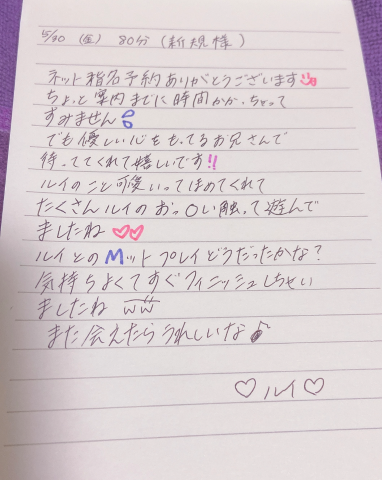 5/30 (金) 80分 (新規様)
ネット指名予約ありがとうございます
ちょっと案内までに時間かかっちゃって
すみません💦
でも優しい心をもってるお兄さんで
待っててくれて嬉しいです‼
ルイのこと可愛いってほめてくれて
たくさんルイのおっ〇い触って遊んで
ましたね♡♡
ルイとのMットプレイどうだったかな?
気持ちよくてすぐフィニッシュしちゃい
ましたね ww
また会えたらうれしいな♪
♡ルイ♡